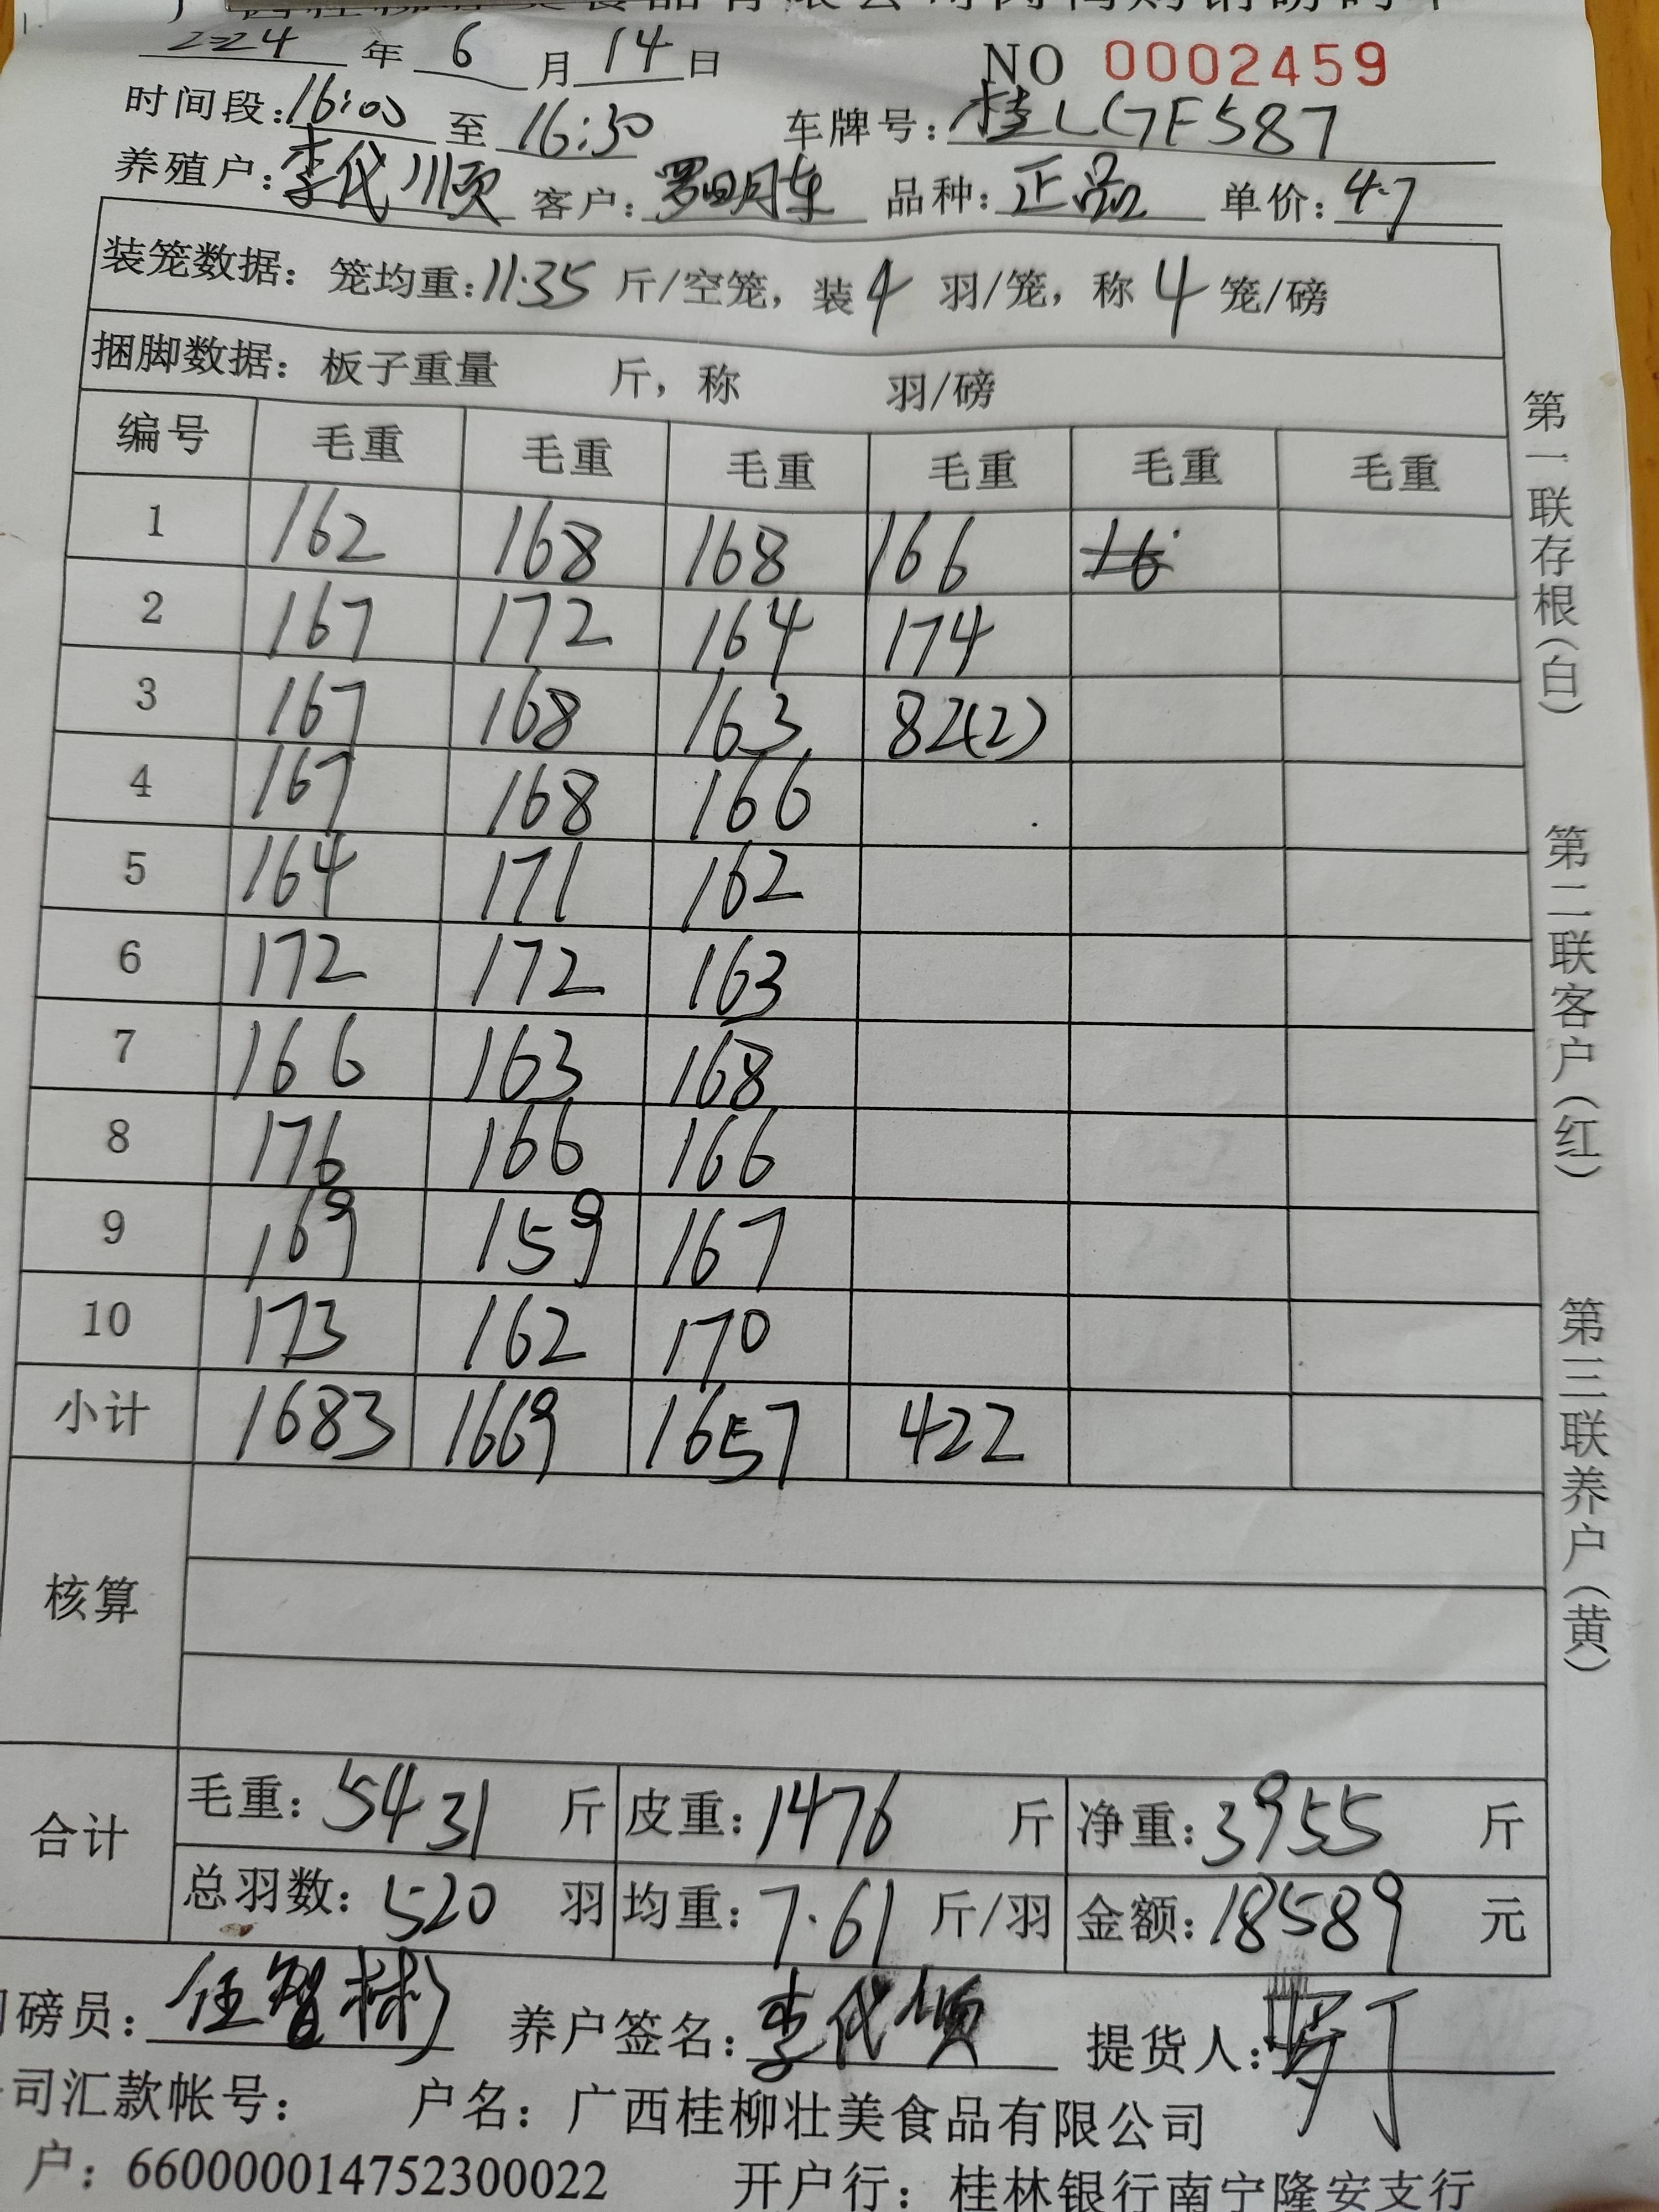 2024 年 6 月 14 日 NO 0002459
时间段:16:00 至 16:30 车牌号:桂LGF587
养殖户:李代顺 客户:罗明东 品种:正品 单价:4.7
装笼数据: 笼均重:11.35 斤/空笼, 装 4 羽/笼, 称 4 笼/磅
捆脚数据: 板子重量 斤, 称 羽/磅
编号 毛重 毛重 毛重 毛重 毛重 毛重
1 162 168 168 166 16
2 167 172 164 174
3 167 168 163 82(2)
4 167 168 166
5 164 171 162
6 172 172 163
7 166 163 168
8 176 166 166
9 169 159 167
10 173 162 170
小计 1683 1669 1657 422
核算
合计 毛重: 5431 斤 皮重: 1476 斤 净重: 3955 斤
总羽数: 520 羽 均重: 7.61 斤/羽 金额: 18589 元
磅员: 任智彬 养户签名: 李代顺 提货人:
司汇款帐号: 户名: 广西桂柳壮美食品有限公司
户: 660000014752300022 开户行: 桂林银行南宁隆安支行
第一联存根(白)
第二联客户(红)
第三联养户(黄)